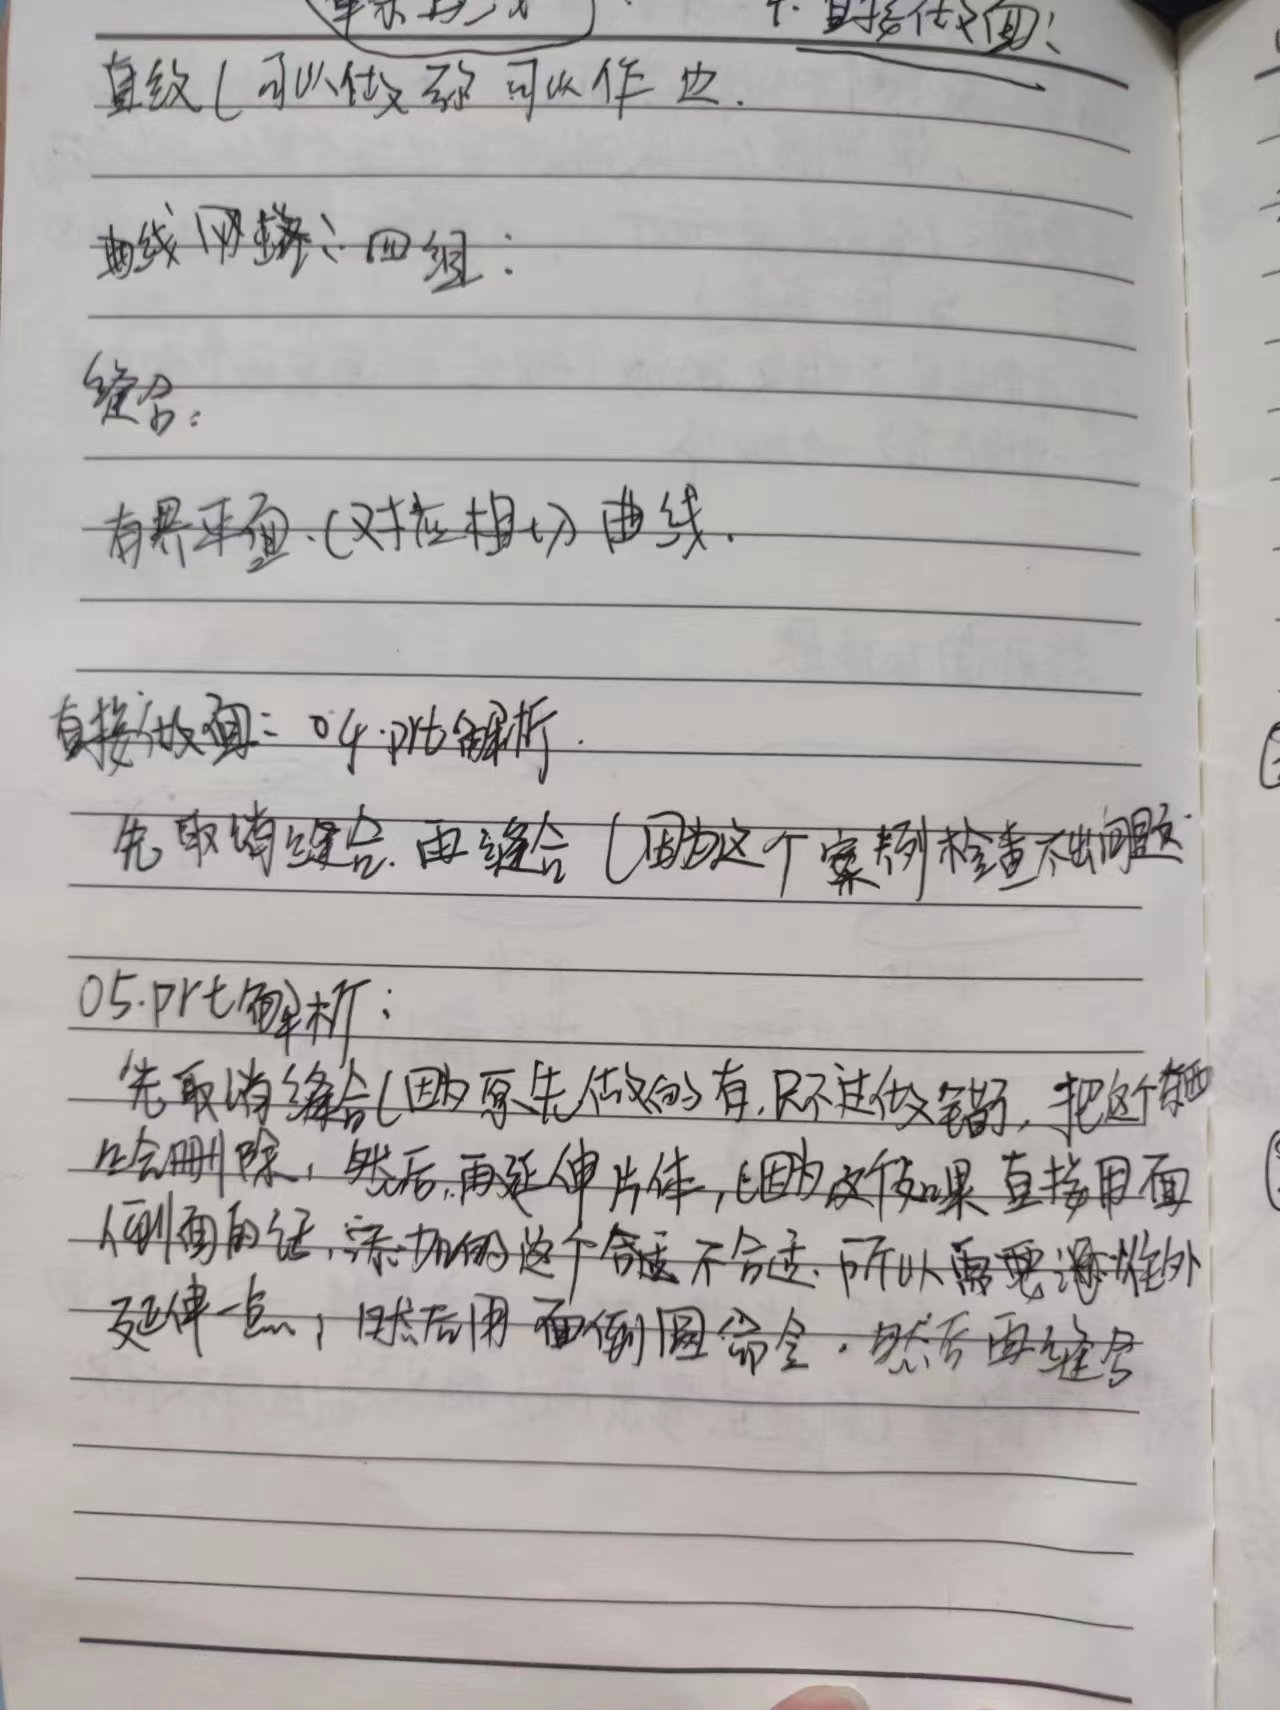 直接做面：
直纹（可以做 可以作
曲线网格：四组：
缝合：
有界平面.（对应相切）曲线.
直接做面：04.prt解析.
先取消缝合.再缝合（因为这个案例检查不出问题.
05.prt解析：
先取消缝合（因为原先做的有,只不过做错了，把这个
删除，然后,再延伸片体，（因为这个如果直接用面
倒圆的话，添加的这个合适不合适.所以需要 往外
延伸一点，然后用面倒圆命令.然后再缝合